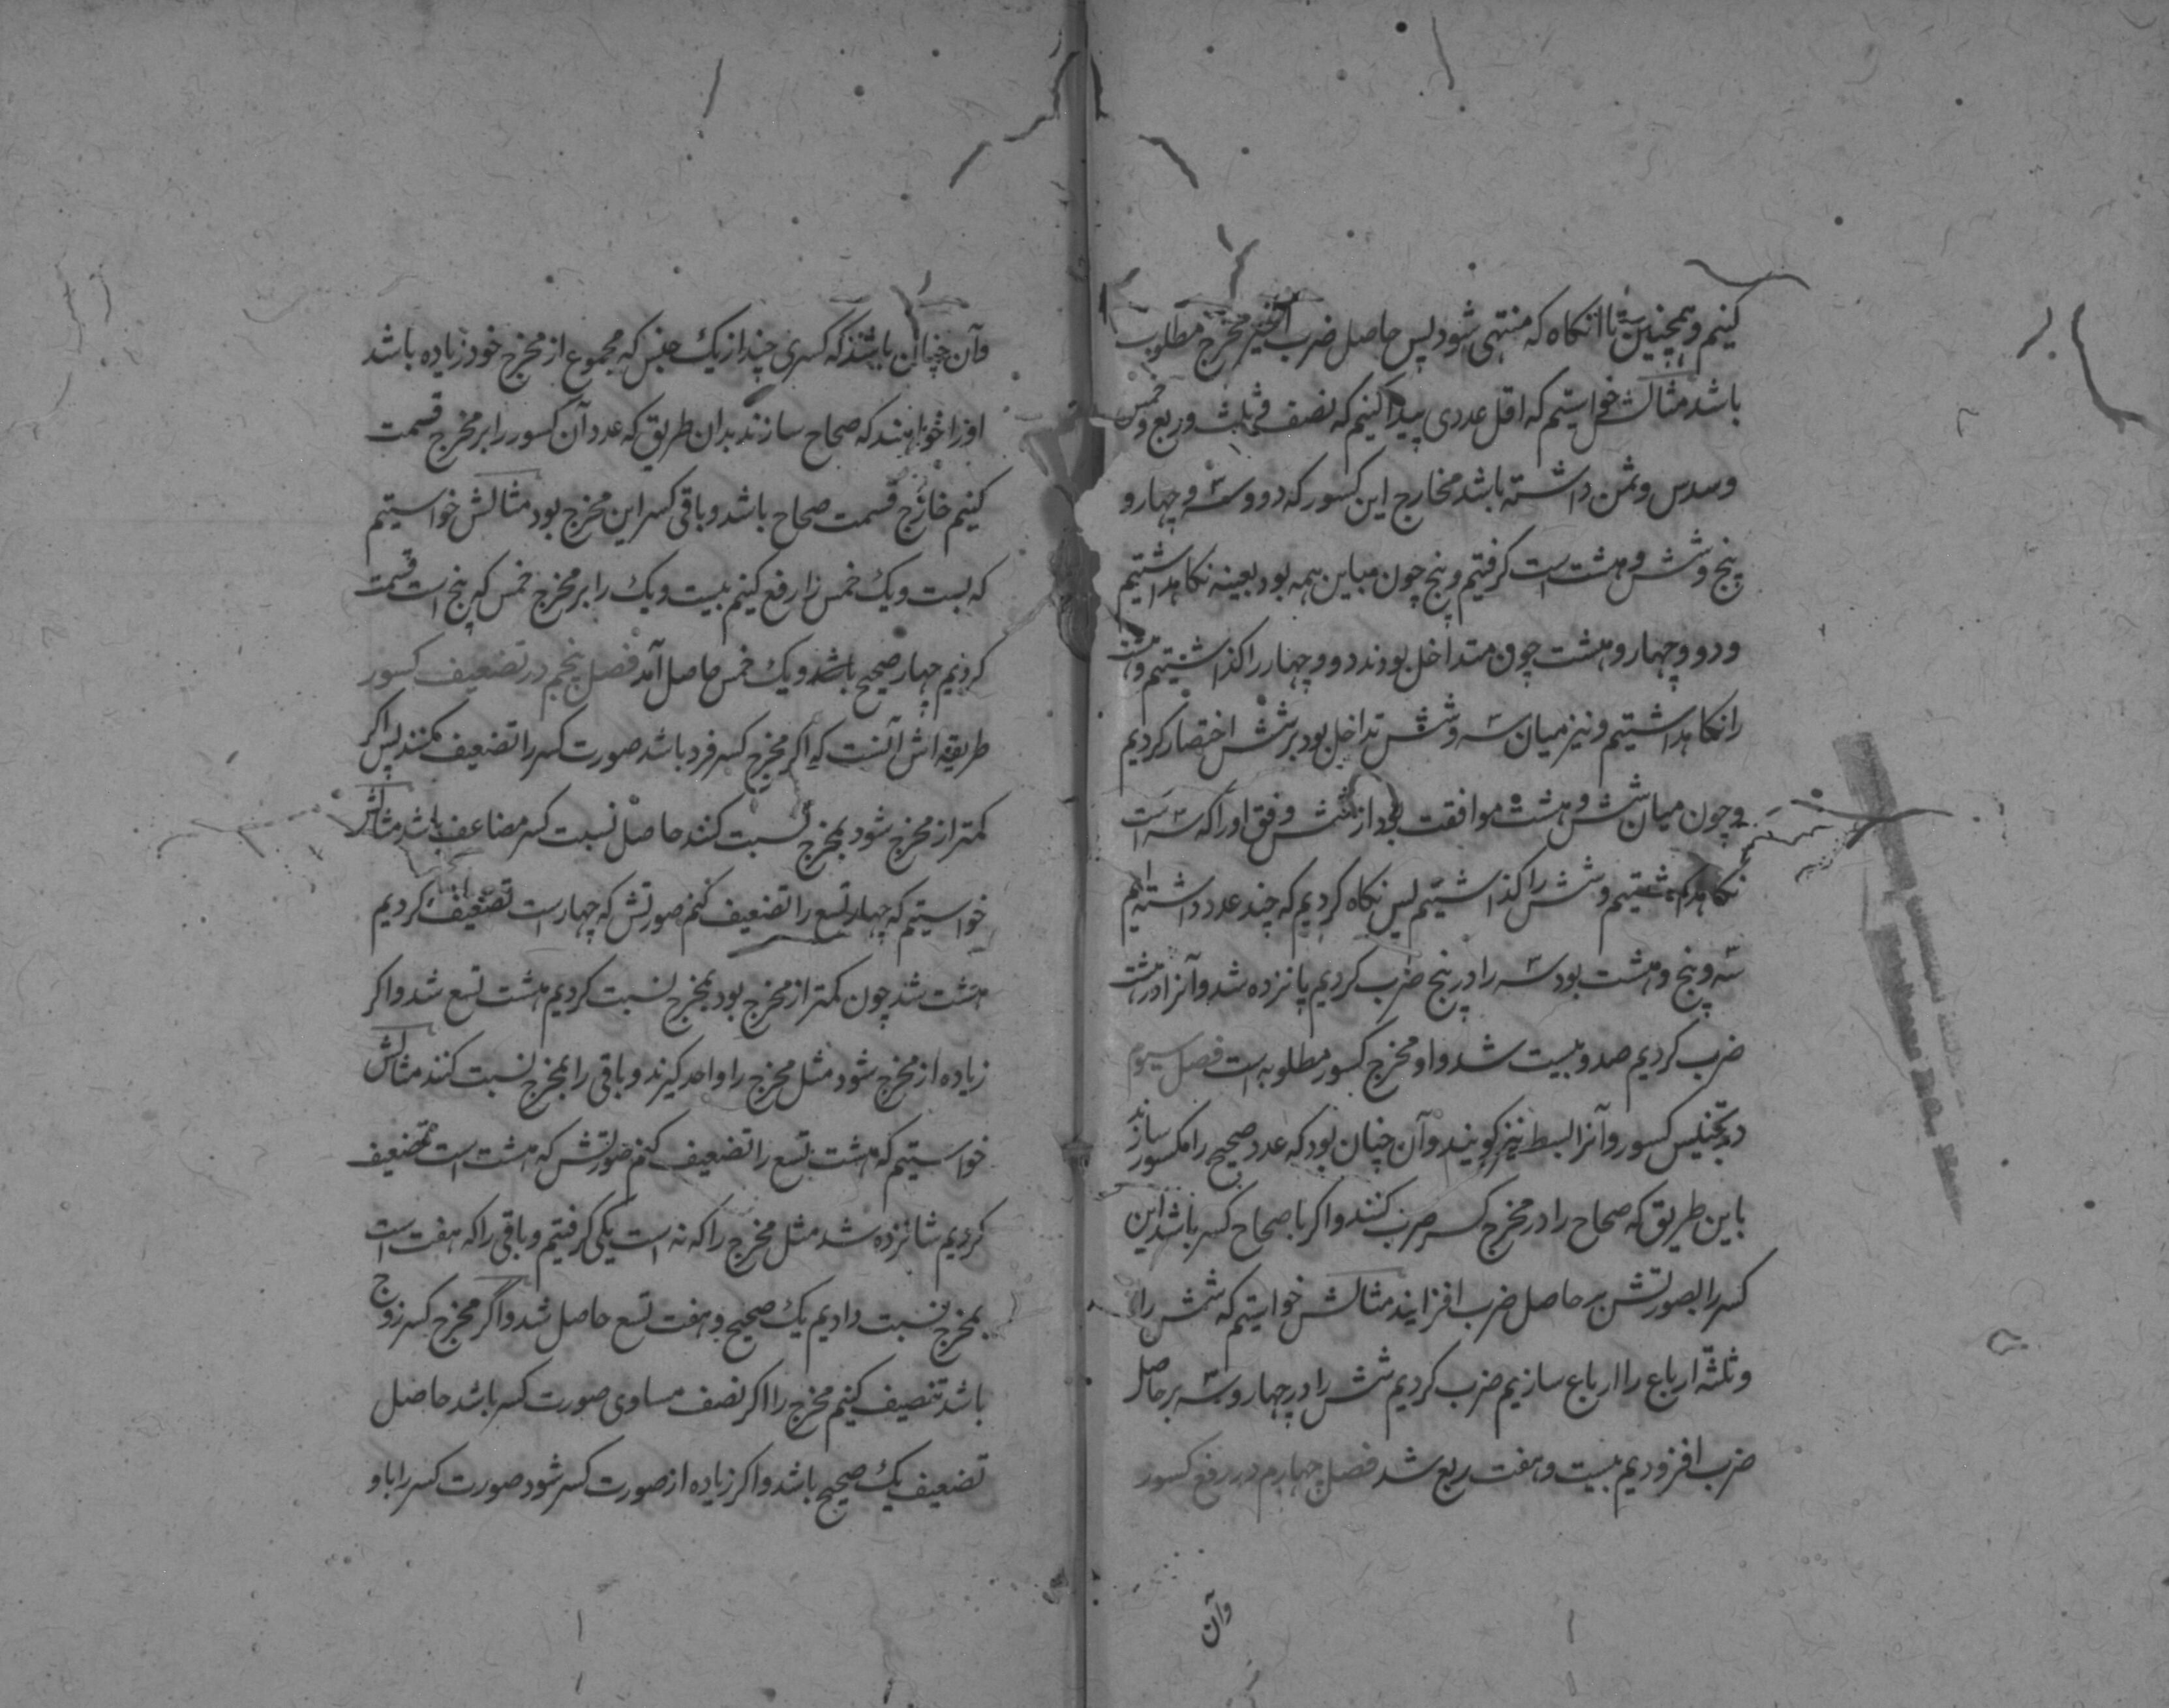 کنیم و همچنین تا آنکاه که منتهی شود پس حاصل ضرب اخیر مخرج مطلوب
باشد مثالش خواستیم که اقل عددی پیدا کنیم که نصف و ثلث و ربع و خمس
و سدس و ثمن داشته باشد مخارج این کسور که دو و سه و چهار و
پنج و شش و هشت است کرفتیم و پنج چون مباین همه بود بعینه نکاهداشتیم
و دو و چهار و هشت چون متداخل بودند دو و چهار را کذاشتیم و هشت
را نکاهداشتیم و نیز میان سه و شش تداخل بود بر شش اختصار کردیم
و چون میان شش و هشت موافقت بود از شش وفق او را که سه است
نکاهداشتیم و شش را کذاشتیم پس نکاه کردیم که چند عدد داشته ایم
سه و پنج و هشت بود سه را در پنج ضرب کردیم پانزده شد و آنرا در هشت
ضرب کردیم صد و بیست شد و او مخرج کسور مطلوبه است فصل سیوم
در تجنیس کسور و آنرا بسط نیز کویند و آن چنان بود که عدد صحیح را مکسور سازند
باین طریق که صحاح را در مخرج کسر ضرب کنند و اکر با صحاح کسر باشد این
کسر را بصورتش بر حاصل ضرب افزایند مثالش خواستیم که شش را
و ثلثه ارباع را ارباع سازیم ضرب کردیم شش را در چهار و سه بر حاصل
ضرب افزودیم بیست و هفت ربع شد فصل چهارم در رفع کسور
وآن
وآن چنان باشد که کسری چند از یک جنس که مجموع از مخرج خود زیاده باشد
اورا خواهند که صحاح سازند بدان طریق که عدد آن کسور را بر مخرج قسمت
کنیم خارج قسمت صحاح باشد و باقی کسر این مخرج بود مثالش خواستیم
که بست و یک خمس را رفع کنیم بیست و یک را بر مخرج خمس که پنج است قسمت
کردیم چهار صحیح باشد و یک خمس حاصل آمد فصل پنجم در تضعیف کسور
طریقه اش آنست که اکر مخرج کسر فرد باشد صورت کسر را تضعیف کنند پس اکر
کمتر از مخرج شود بمخرج نسبت کنند حاصل نسبت کسر مضاعف باشد مثالش
خواستیم که چهار تسع را تضعیف کنم صورتش که چهار است تضعیف کردیم
هشت شد چون کمتر از مخرج بود بمخرج نسبت کردیم هشت تسع شد و اکر
زیاده از مخرج شود مثل مخرج را واحد کیرند و باقی را بمخرج نسبت کنند مثالش
خواستیم که هشت تسع را تضعیف کنم صورتش که هشت است تضعیف
کردیم شانزده شد مثل مخرج را که نه است یکی کرفتیم و باقی را که هفت است
بمخرج نسبت دادیم یک صحیح و هفت تسع حاصل شد و اکر مخرج کسر زوج
باشد تنصیف کنیم مخرج را اکر نصف مساوی صورت کسر باشد حاصل
تضعیف یک صحیح باشد و اکر زیاده از صورت کسر شود صورت کسر را باو